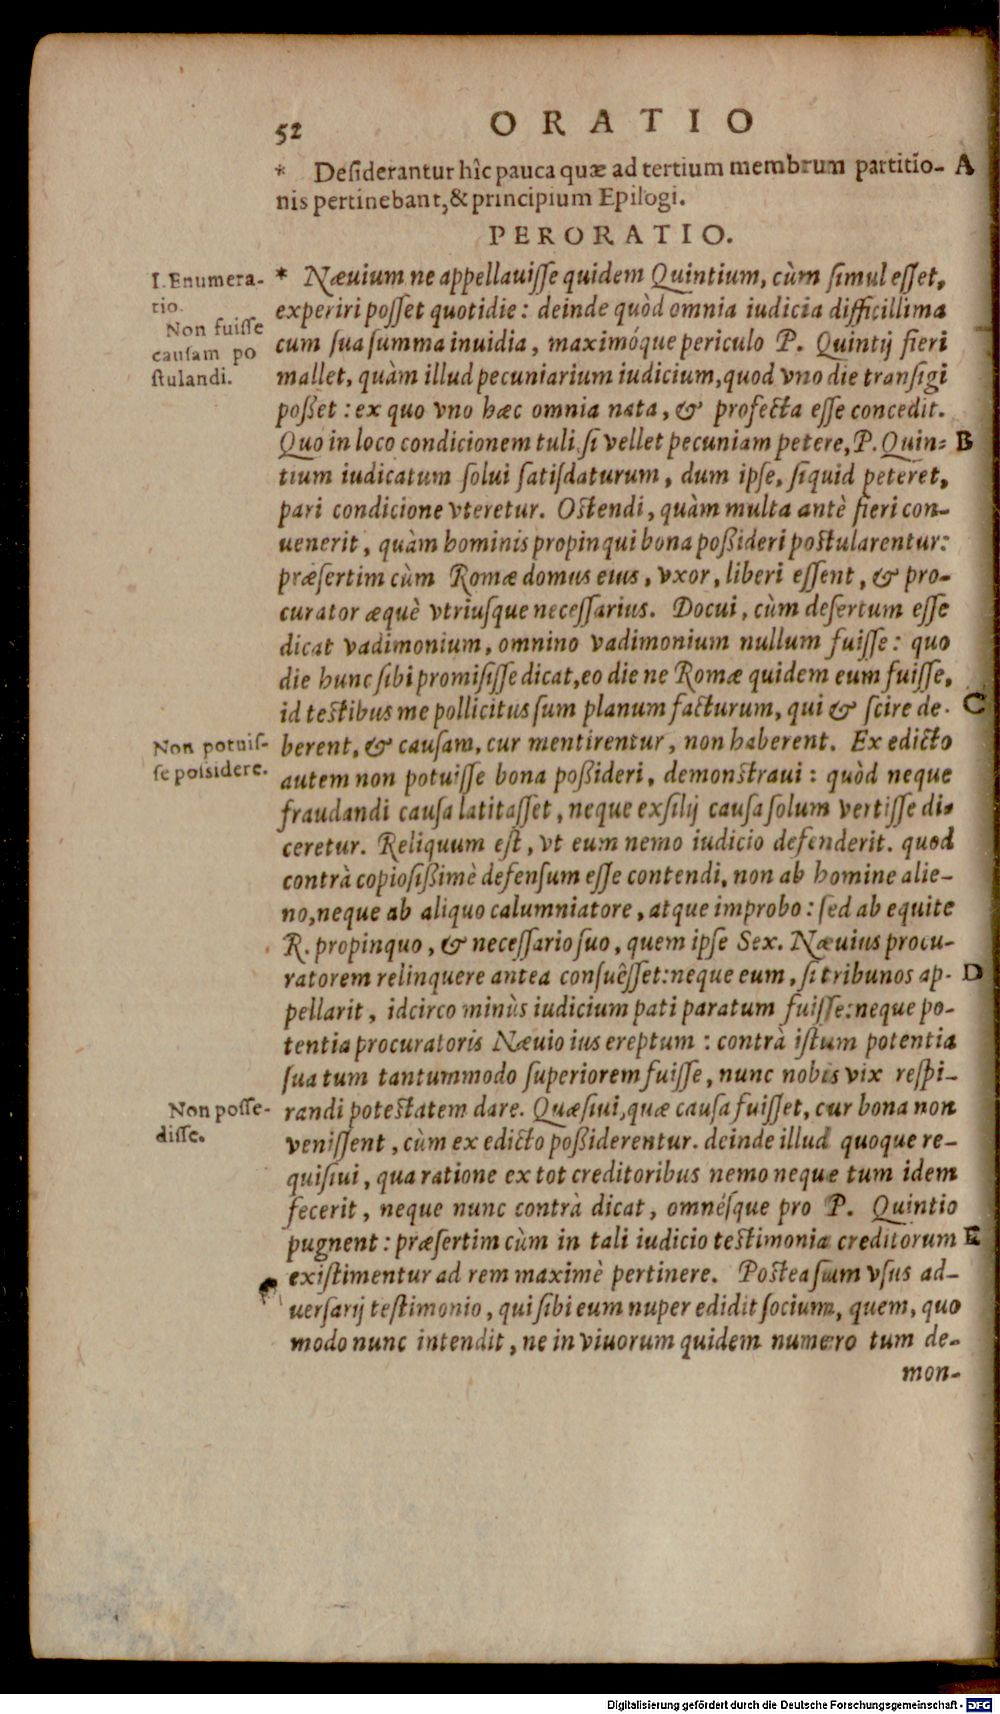 52 ORATIO
* Desiderantur hîc pauca quæ ad tertium membrum partitio- A
nis pertinebant, & principium Epilogi.
PERORATIO.
I. Enumera-
tio.
Non fuisse
causam po
stulandi.
* Næuium ne appellauisse quidem Quintium, cùm simul esset,
experiri posset quotidie: deinde quòd omnia iudicia difficillima
cum sua summa inuidia, maximóque periculo P. Quintij fieri
mallet, quàm illud pecuniarium iudicium, quod vno die transigi
posset: ex quo vno hæc omnia nata, & profecta esse concedit.
Quo in loco condicionem tuli, si vellet pecuniam petere, P. Quin- B
tium iudicatum solui satisdaturum, dum ipse, siquid peteret,
pari condicione vteretur. Ostendi, quàm multa antè fieri con-
uenerit, quàm hominis propinqui bona possideri postularentur:
præsertim cùm Romæ domus eius, vxor, liberi essent, & pro-
curator æquè vtriusque necessarius. Docui, cùm desertum esse
dicat vadimonium, omnino vadimonium nullum fuisse: quo
die hunc sibi promisisse dicat, eo die ne Romæ quidem eum fuisse,
id testibus me pollicitus sum planum facturum, qui & scire de- C
Non potuis-
se possidere.
berent, & causam, cur mentirentur, non haberent. Ex edicto
autem non potuisse bona possideri, demonstraui: quòd neque
fraudandi causa latitasset, neque exsilij causa solum vertisse di-
ceretur. Reliquum est, vt eum nemo iudicio defenderit. quod
contrà copiosissimè defensum esse contendi, non ab homine alie-
no, neque ab aliquo calumniatore, atque improbo: sed ab equite
R. propinquo, & necessario suo, quem ipse Sex. Næuius procu-
ratorem relinquere antea consuêsset: neque eum, si tribunos ap- D
pellarit, idcirco minùs iudicium pati paratum fuisse: neque po-
tentia procuratoris Næuio ius ereptum: contrà istum potentia
sua tum tantummodo superiorem fuisse, nunc nobis vix respi-
Non posse-
disse.
randi potestatem dare. Quæsiui, quæ causa fuisset, cur bona non
venissent, cùm ex edicto possiderentur. deinde illud quoque re-
quisiui, qua ratione ex tot creditoribus nemo neque tum idem
fecerit, neque nunc contrà dicat, omnésque pro P. Quintio
pugnent: præsertim cùm in tali iudicio testimonia creditorum E
existimentur ad rem maximè pertinere. Postea sum vsus ad-
uersarij testimonio, qui sibi eum nuper edidit socium, quem, quo
modo nunc intendit, ne in viuorum quidem numero tum de-
mon-
Digitalisierung gefördert durch die Deutsche Forschungsgemeinschaft - DFG